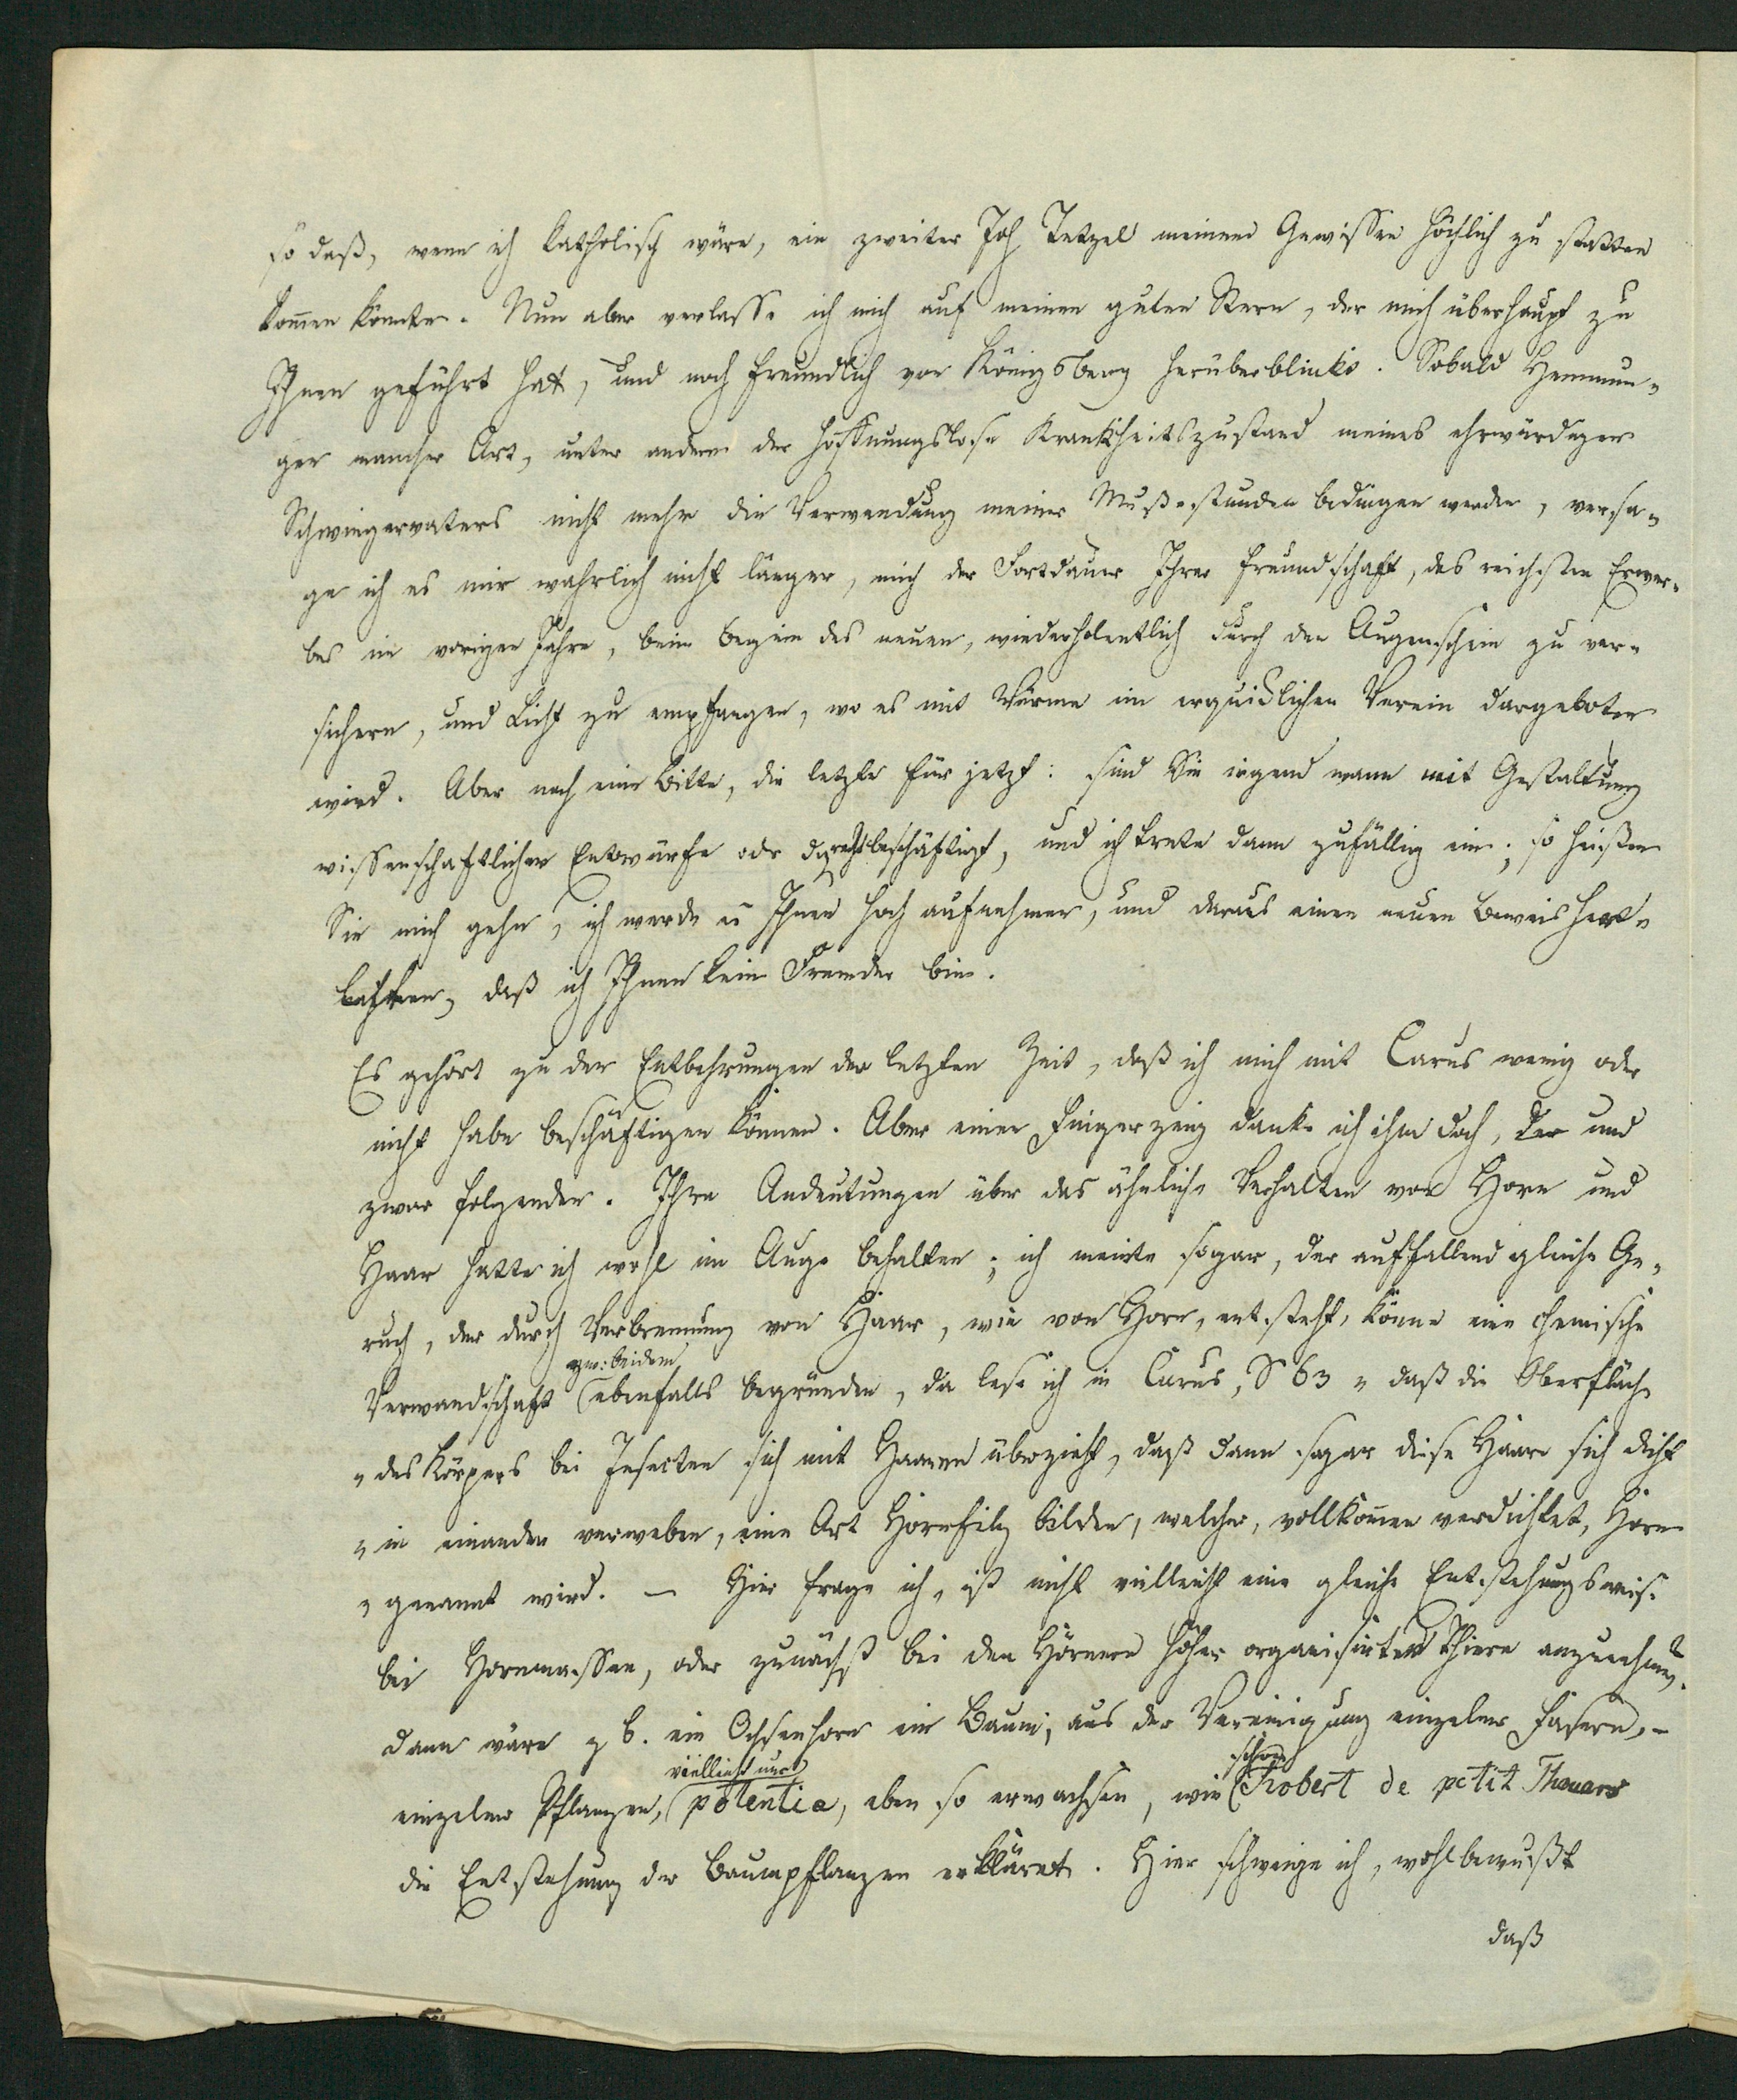 so daß, wenn ich katholisch wäre, ein zweiter Joh Tetzel meinem Gewissen höchlich zu statten
kom̄en könnte. Nun aber verlasse ich mich auf meinen guten Stern, der mich überhaupt zu
Ihnen geführt hat, und noch freundlich von Königsberg herüberblinkt. Sobald Hemmun-
gen mancher Art, unter andern der hoffnungslose Krankheitszustand meines ehrwürdigen
Schwiegervaters nicht mehr die Verwendung meiner Mußestunden bedingen werden, versa-
ge ich es mir wahrlich nicht länger, mich der Fortdauer Ihrer Freundschaft, des reichsten Erwer-
bes im vorigen Jahre, beim Beginn des neuen, wiederholentlich durch den Augenschein zu ver-
sichern, und Licht zu empfangen, wo es mit Wärme im erquicklichen Verein dargeboten
wird. Aber noch eine Bitte, die letzte für jetzt: sind Sie irgend wann mit Gestaltung
wissenschaftlicher Entwürfe oder dgl beschäftigt, und ich trete dann zufällig ein; so heißen
Sie mich gehn, ich werde es Ihnen hoch aufnehmen, und daraus einen neuen Beweis
daß ich Ihnen kein Fremder bin.
Es gehört zu den Entbehrungen der letzten Zeit, daß ich mich mit Carus wenig oder
nicht habe beschäftigen können. Aber einen Fingerzeig danke ich ihm doch, der und
zwar folgenden. Ihre Andeutungen über das ähnliche Verhalten von Horn und
Haar hatte ich wohl im Auge behalten; ich meinte sogar, der auffallend gleiche Ge-
ruch, der durch Verbrennung von Haar, wie von Horn, entsteht, könne eine chemische
zw: beiden
Verwandschaft (ebenfalls begründen, da lese ich in Carus, S 63 „daß die Oberfläche
„des Körpers bei Insecten sich mit Haaren überzieht, daß dann sogar diese Haare sich dicht
„in einander verweben, eine Art Hornfilz bilden, welcher, vollkom̄en verdichtet, Horn
„genannt wird. — Hier frage ich, ist nicht vielleicht eine gleiche Entstehungsweise
bei Hornmassen, oder zunächst bei den Hörnern höher organisirter Thiere anzunehmen.
Dann wäre z B. ein Ochsenhorn ein Baum, aus der Vereinigung einzelner Fasern, -
vielleicht nur schon
einzelner Pflanzen, (potentia, eben so erwachsen, wie (Robert de petit Thouars
die Entstehung der Baumpflanzen erklärt. Hier schweige ich, wohl bewußt
daß